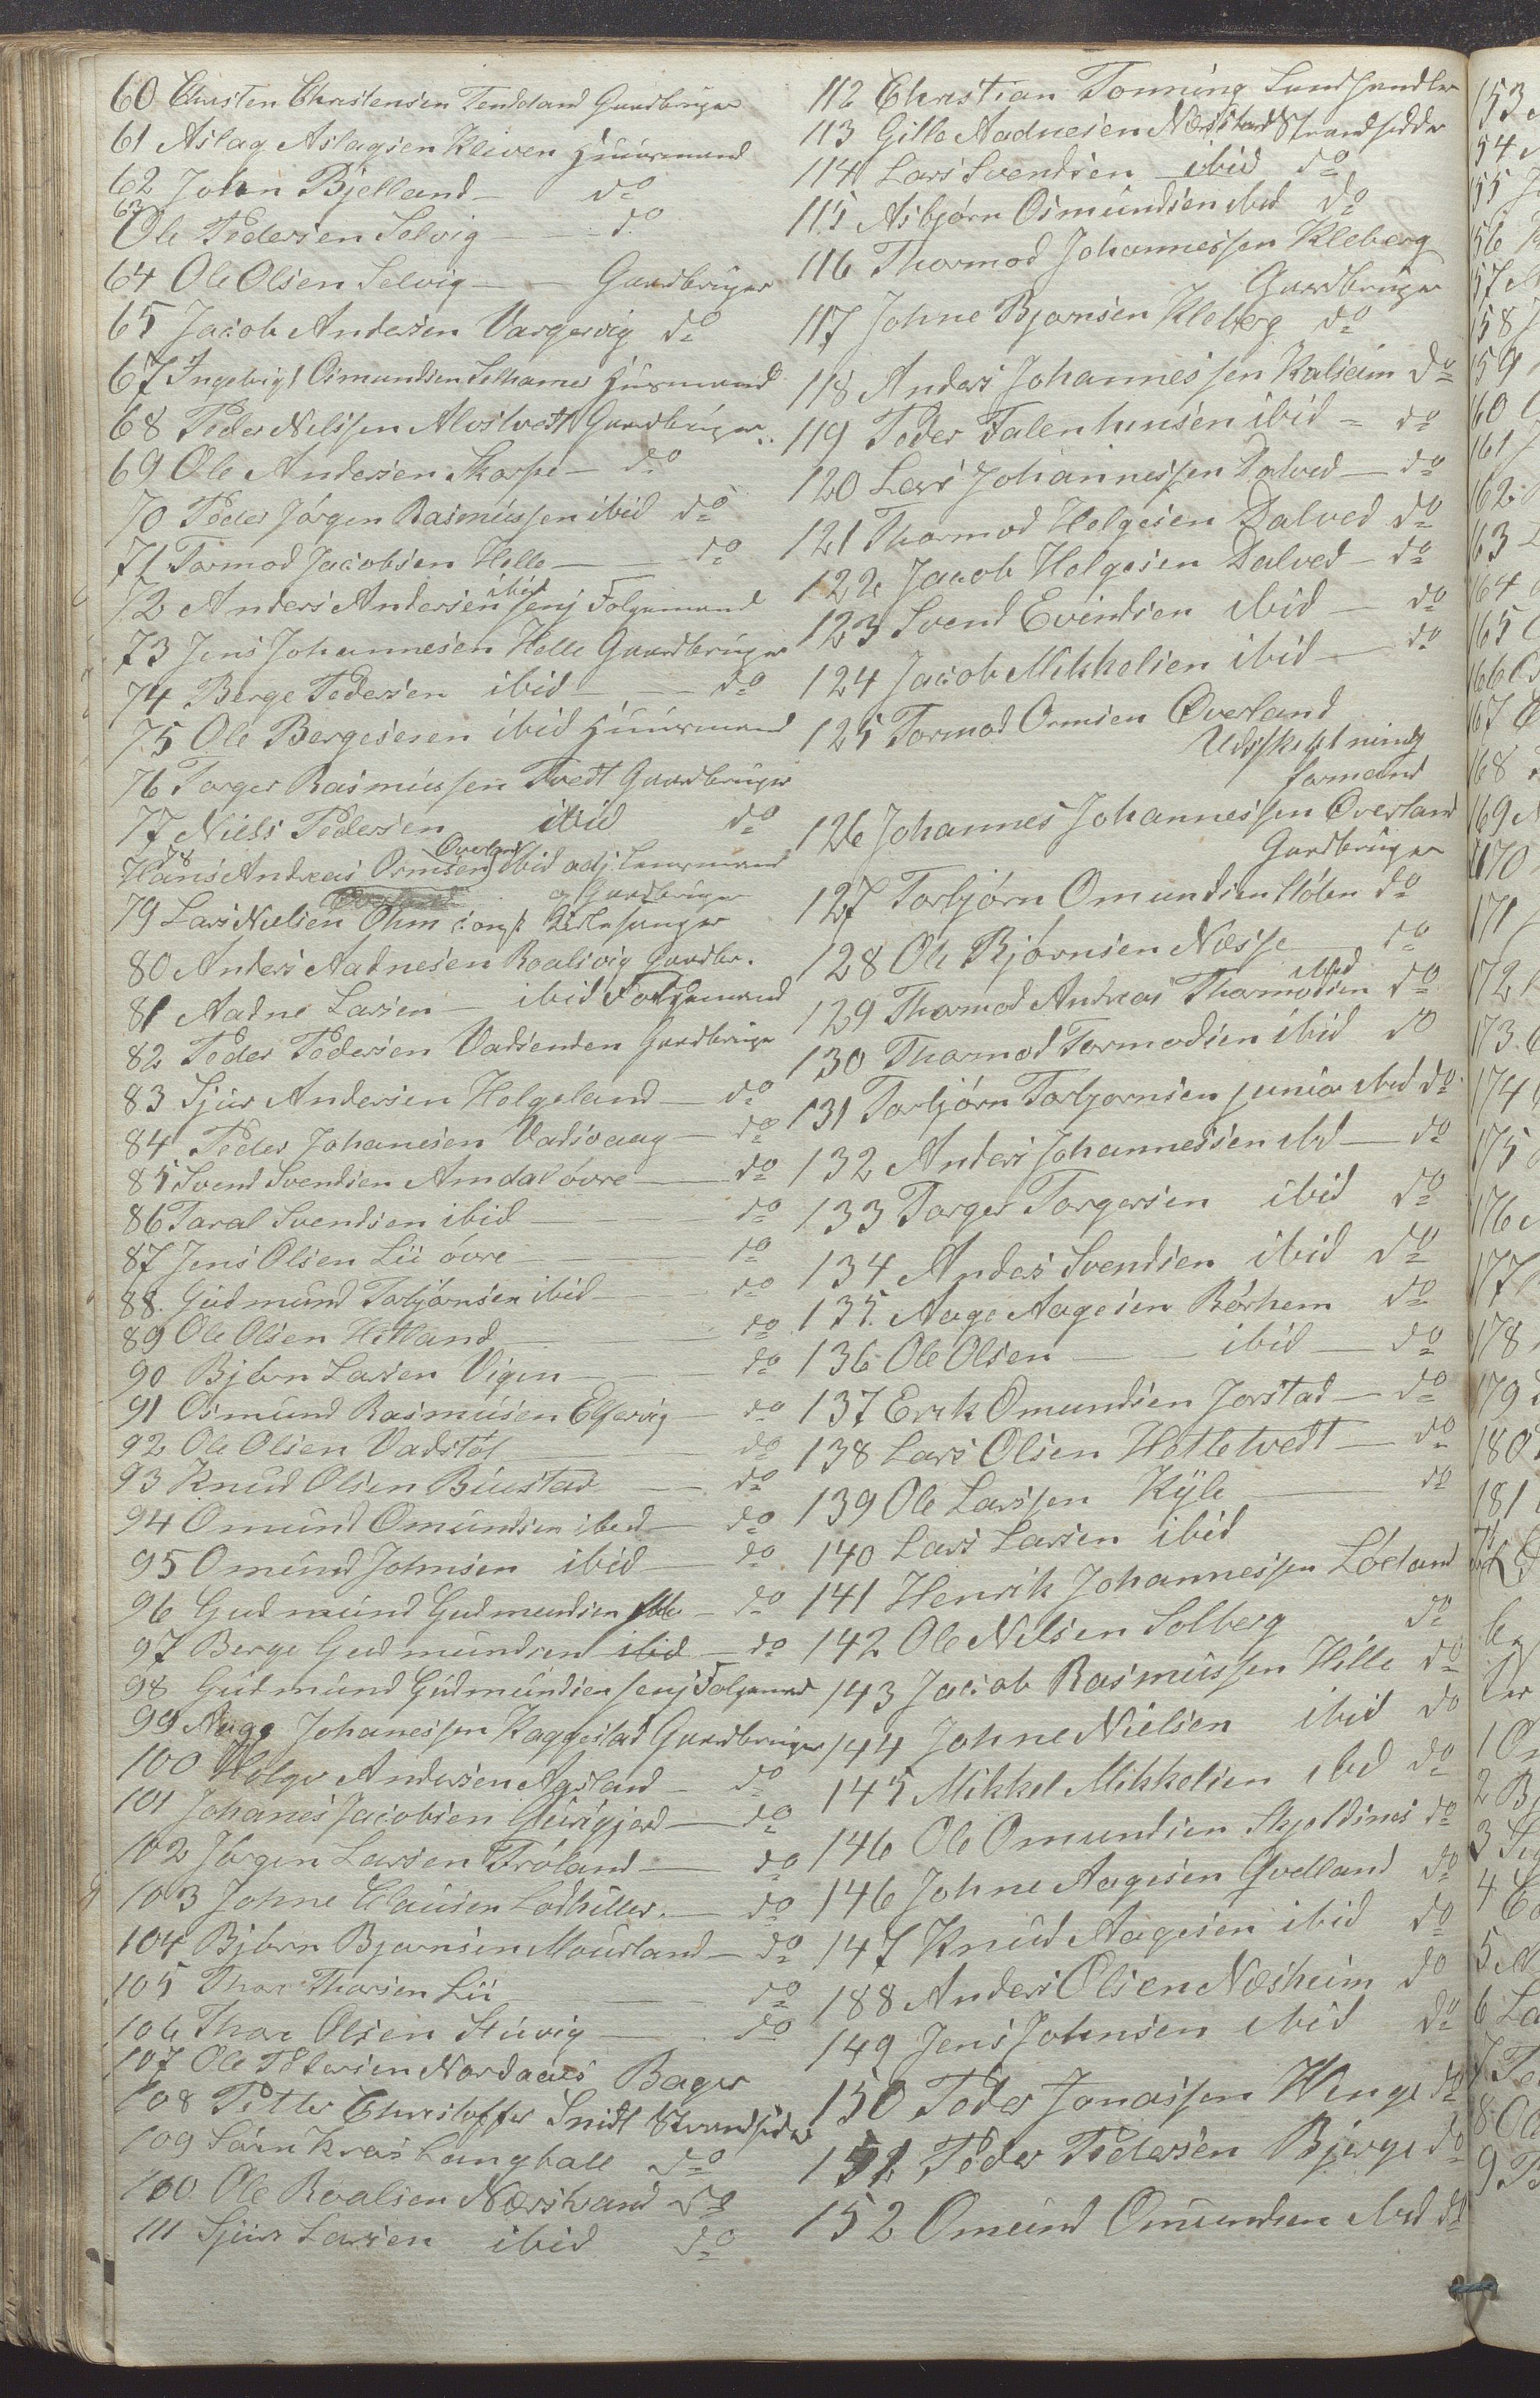 60 Christen Christensen Tendeland Gaardbruger
61 Aslag Aslagsen Kleiven Huusmand
62 John Bjelland — do
63 Ole Pedersen Selvig — do
64 Ole Olsen Selvig — — Gaardbruger
65 Jacob Andersen Vargervig do
67 Ingebrigt Osmundsen Selhamer Husmand
68 Peder Nilssen Alvstvedt Gaardbruger
69 Ole Andersen Skorpe — do
70 Peder Jørgen Rasmussen ibid do
71 Tormod Jacobsen Helle — do
72 Anders Andersen ibid senj Folgemand
73 Jens Johannesen Helle Gaardbruger
74 Berge Pedersen ibid — — do
75 Ole Bergesesen ibid Huusmand
76 Torger Rasmussen Tvedt Gaardbruger
77 Niels Pedersen ibid do
78 Hans Andreas Ormsen Overland ibid adj. Lensmand
og Gaardbruger
79 Lars Nielsen Ohm const
80 Anders Aadnesen Roalsvig Gaardbr.
81 Aadne Larsen — ibid Folgemand
82 Peder Pedersen Vadsenden Gaardbruger
83 Sjur Andersen Helgeland — do
84 Peder Johanesen Vadsvaag — do
85 Svend Svendsen Amdal øvre — do
86 Taral Svendsen ibid — do
87 Jens Olsen Lii øvre — do
88. Gudmund Torbjørnsen ibid — do
89 Ole Olsen Hetland — do
90 Bjørn Larsen Vigen — do
91 Osmund Rasmusen Elfervig — do
92 Ole Olsen Vadstøl — do
93 Knud Olsen Biustad — do
94 Omund Omundsen ibid — do
95 Omund Johnsen ibid — do
96 Gudmund Gudmundsen — do
97 Berge Gudmundsen ibid — do
98 Gudmund Gudmundsen senj Folgemand
99 Aage Johanessen Kaggestad Gaardbruger
100 Helge Andersen Agsland — do
101 Johanes Jacobsen — do
102 Jørgen Larsen Frøland — do
103 Johne Clausen Lodhiller. — do
104 Bjørn Bjørnsen Mousland — do
105 Thor Thorsen Lii — do
106 Thor Olsen Stuvig — do
107 Ole Petersen Nordaaes Bager
108 Petter Christoffer Smidt Strandsider
109 Sørn Kras Langball do
100 Ole Roalsen Nærstrand do
111 Sjurs Larsen ibid do
112 Christian Tonning Landhandler
113 Gille Aadnesen Nærstrand Strandsidder
114 Lars Svendsen ibid do
115 Asbjørn Osmundsen ibid do
116 Thormod Johannessen Kleberg
Gaardbruger
117 Johne Bjørnsen Kleberg do
118 Anders Johannessen Kalseim do
119 Peder Falentinsen ibid — do
120 Lars Johannessen Dalved — do
121 Thormod Helgesen Dalved do
122 Jacob Helgesen Dalved — do
123 Svend Evindsen ibid — do
124 Jacob Mikkelsen ibid — do
125 Tormod Ormsen Overland
Udskiftnings
formand
126 Johannes Johannessen Overland
Gardbruger
127 Torbjørn Omundsen Hølen do
128 Ole Bjørnsen Næsse — do
129 Thormod Andreas Thormodsen ibid do
130 Thormod Tormodsen ibid do
131 Torbjørn Torbjørnsen junior ibid do
132 Anders Johannessen ibid — do
133 Torger Torgersen ibid do
134 Anders Svendsen ibid do
135. Aage Aagesen Børhem do
136 Ole Olsen — ibid — do
137 Erik Omundsen Jørstad — do
138 Lars Olsen Hetletvedt — do
139 Ole Larssen Kyle — do
140 Lars Larsen ibid
141 Henrik Johannessen Løeland
142 Ole Nilsen Solberg do
143 Jacob Rasmussen Hille do
144 Johne Nielsen ibid do
145 Mikkel Mikkelsen ibid do
146 Ole Omundsen Skjoldsnes do
146 Johne Aagesen Qvelland do
147 Knud Aagesen ibid do
188 Anders Olsen Næsheim do
149 Jens Johnsen ibid do
150 Peder Jonassen Wenge do
151 Peder Pedersen Bjerge do
152 Omund Omundsen ibid do